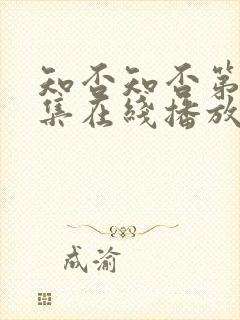 知否知否第
集在线播放
成渝